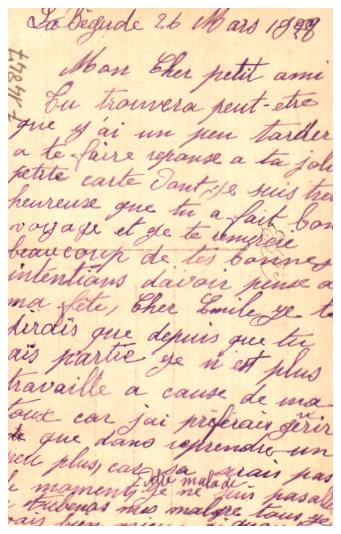 La Bégude 26 Mars 19
Mon Cher petit ami
Tu trouvera peut-etre
que j'ai un peu tarder
a te faire reponse a ta joli
petite carte dont je suis tres
heureuse que tu a fait bon
voyage et je te remercie
beaucoup de tes bonnes
intentions davoir pense a
ma fête, Cher Emile je te
dirais que depuis que tu
ais partie je n'est plus
travaille a cause de ma
toux car j'ai préferais gérir
que dans reprendre un
peu plus, car sa serais pas
être malade
moment je ne suis pas allé
Aubenas mes malgre tous je